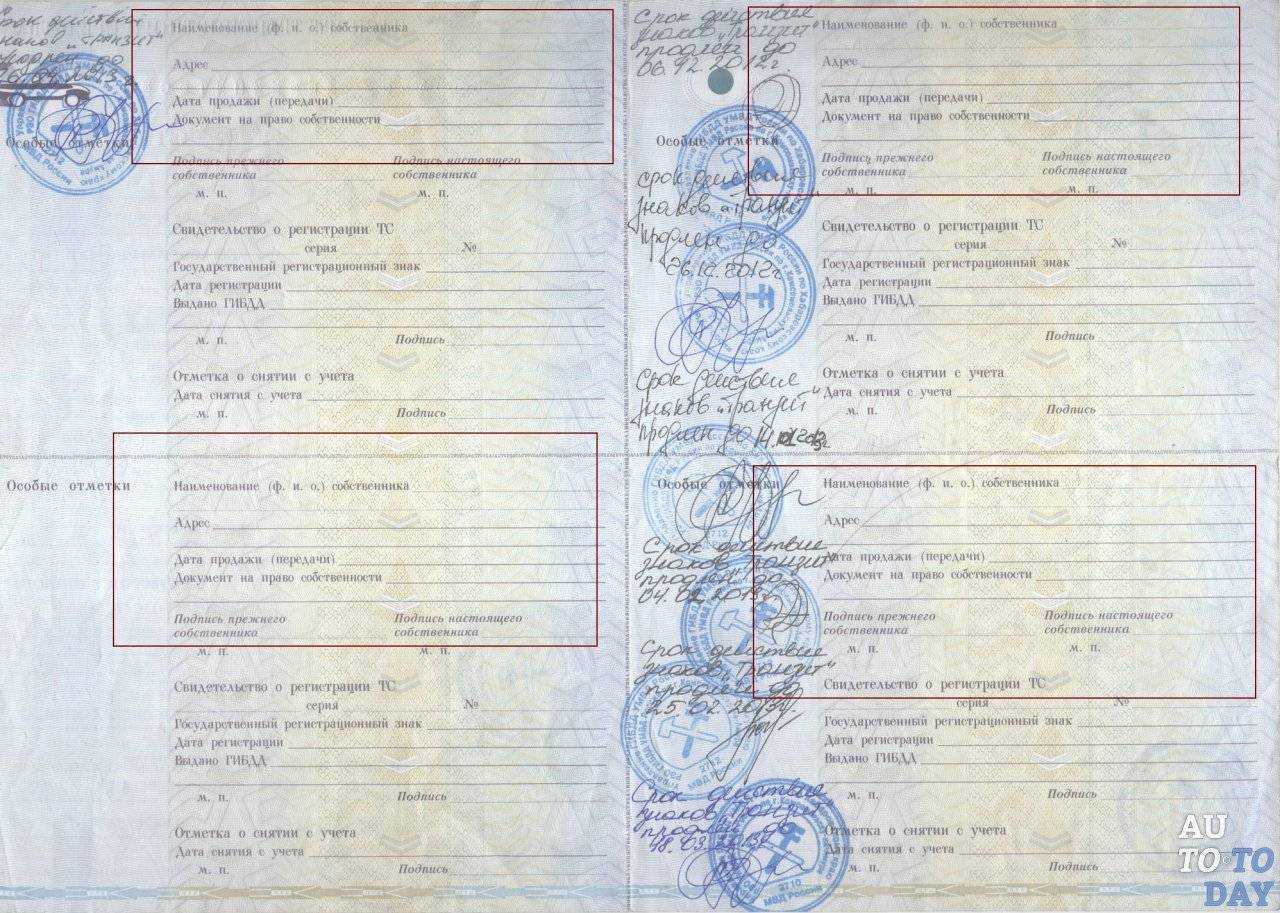 Срок действия
знаков "Транзит"
до
Особые отметки
Наименование (ф. и. о.) собственника
Адрес
Дата продажи (передачи)
Документ на право собственности
Подпись прежнего собственника
Подпись настоящего собственника
м. п. м. п.
Свидетельство о регистрации ТС
серия №
Государственный регистрационный знак
Дата регистрации
Выдано ГИБДД
м. п. Подпись
Отметка о снятии с учета
Дата снятия с учета
м. п. Подпись
Особые отметки
Наименование (ф. и. о.) собственника
Адрес
Дата продажи (передачи)
Документ на право собственности
Подпись прежнего собственника
Подпись настоящего собственника
м. п. м. п.
Свидетельство о регистрации ТС
серия №
Государственный регистрационный знак
Дата регистрации
Выдано ГИБДД
м. п. Подпись
Отметка о снятии с учета
Дата снятия с учета
м. п. Подпись
Срок действие
знаков "Транзит"
продлен до
06.12.2012г.
Особые отметки
срок действие
знаков "Транзит"
продлен до
26.12.2012г
Срок действие
знаков "Транзит"
продлен до 14.
Особые отметки
Срок действие
знаков "Транзит"
продлен до
04.02.2013г.
Срок действие
знаков "Транзит"
продлен до
25.02.2013г
Срок действие
знаков "Транзит"
продлен до
18.03.2013г
Наименование (ф. и. о.) собственника
Адрес
Дата продажи (передачи)
Документ на право собственности
Подпись прежнего собственника
Подпись настоящего собственника
м. п. м. п.
Свидетельство о регистрации ТС
серия №
Государственный регистрационный знак
Дата регистрации
Выдано ГИБДД
м. п. Подпись
Отметка о снятии с учета
Дата снятия с учета
м. п. Подпись
Наименование (ф. и. о.) собственника
Адрес
Дата продажи (передачи)
Документ на право собственности
Подпись прежнего собственника
Подпись настоящего собственника
м. п. м. п.
Свидетельство о регистрации ТС
серия №
Государственный регистрационный знак
Дата регистрации
Выдано ГИБДД
м. п. Подпись
Отметка о снятии с учета
Дата снятия с учета
м. п. Подпись
AU
TO TO
DAY